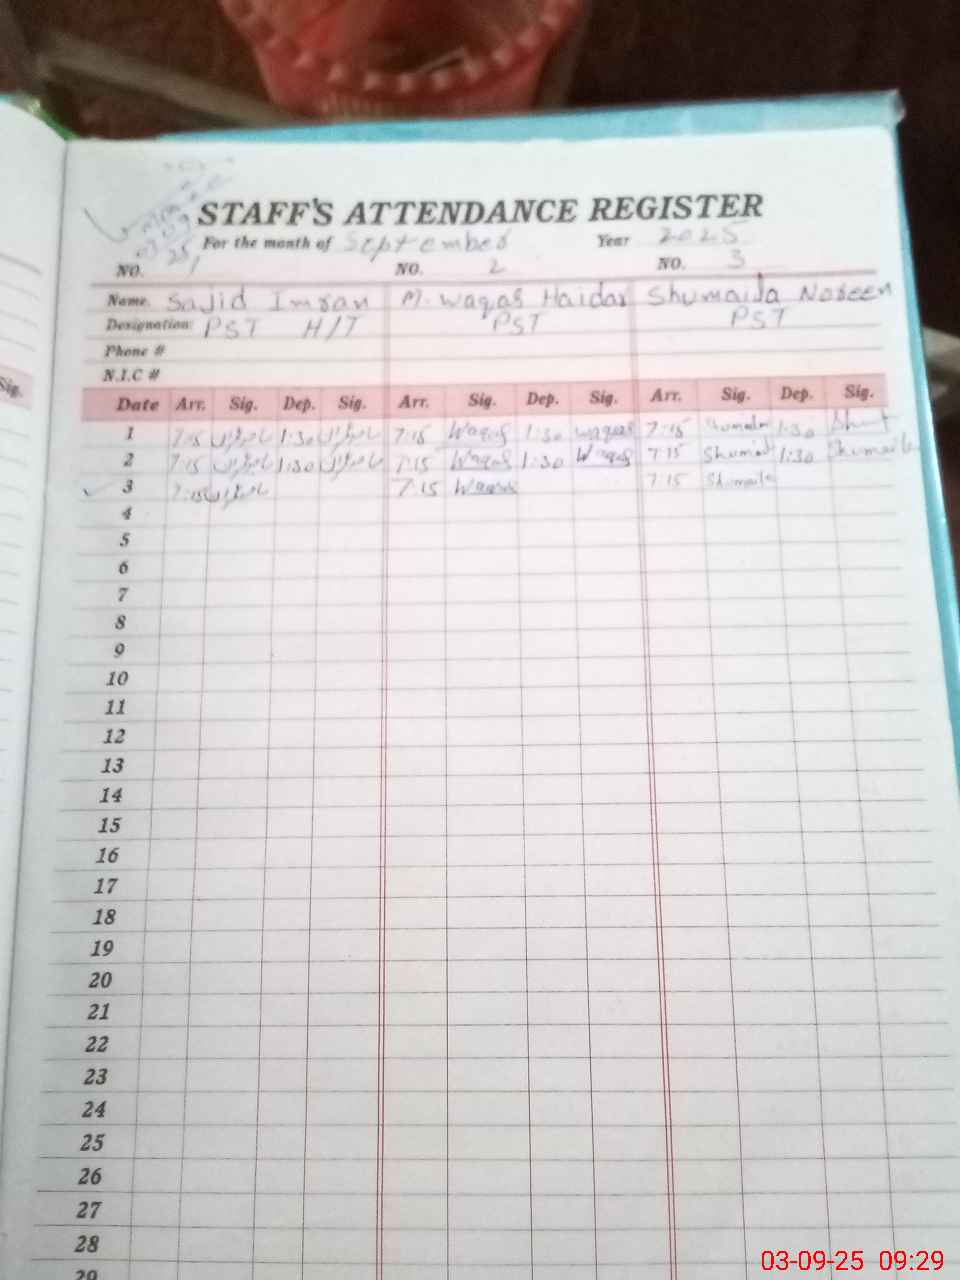 STAFF'S ATTENDANCE REGISTER
For the month of September Year 2025
NO. 1 NO. 2 NO. 3
Name. Sajid Imran M. Waqas Haidar Shumaila Noreen
Designation: PST H/T PST PST
Phone #
N.I.C #
Sig.
Date Arr. Sig. Dep. Sig. Arr. Sig. Dep. Sig. Arr. Sig. Dep. Sig.
1 7:15 1:30 7:15 Waqas 1:30 Waqas 7:15 Shumaila 1:30
2 7:15 1:30 7:15 Waqas 1:30 Waqas 7:15 Shumaila 1:30 Shumaila
3 7:15 7:15 Waqas 7:15 Shumaila
4
5
6
7
8
9
10
11
12
13
14
15
16
17
18
19
20
21
22
23
24
25
26
27
28
29
03-09-25 09:29